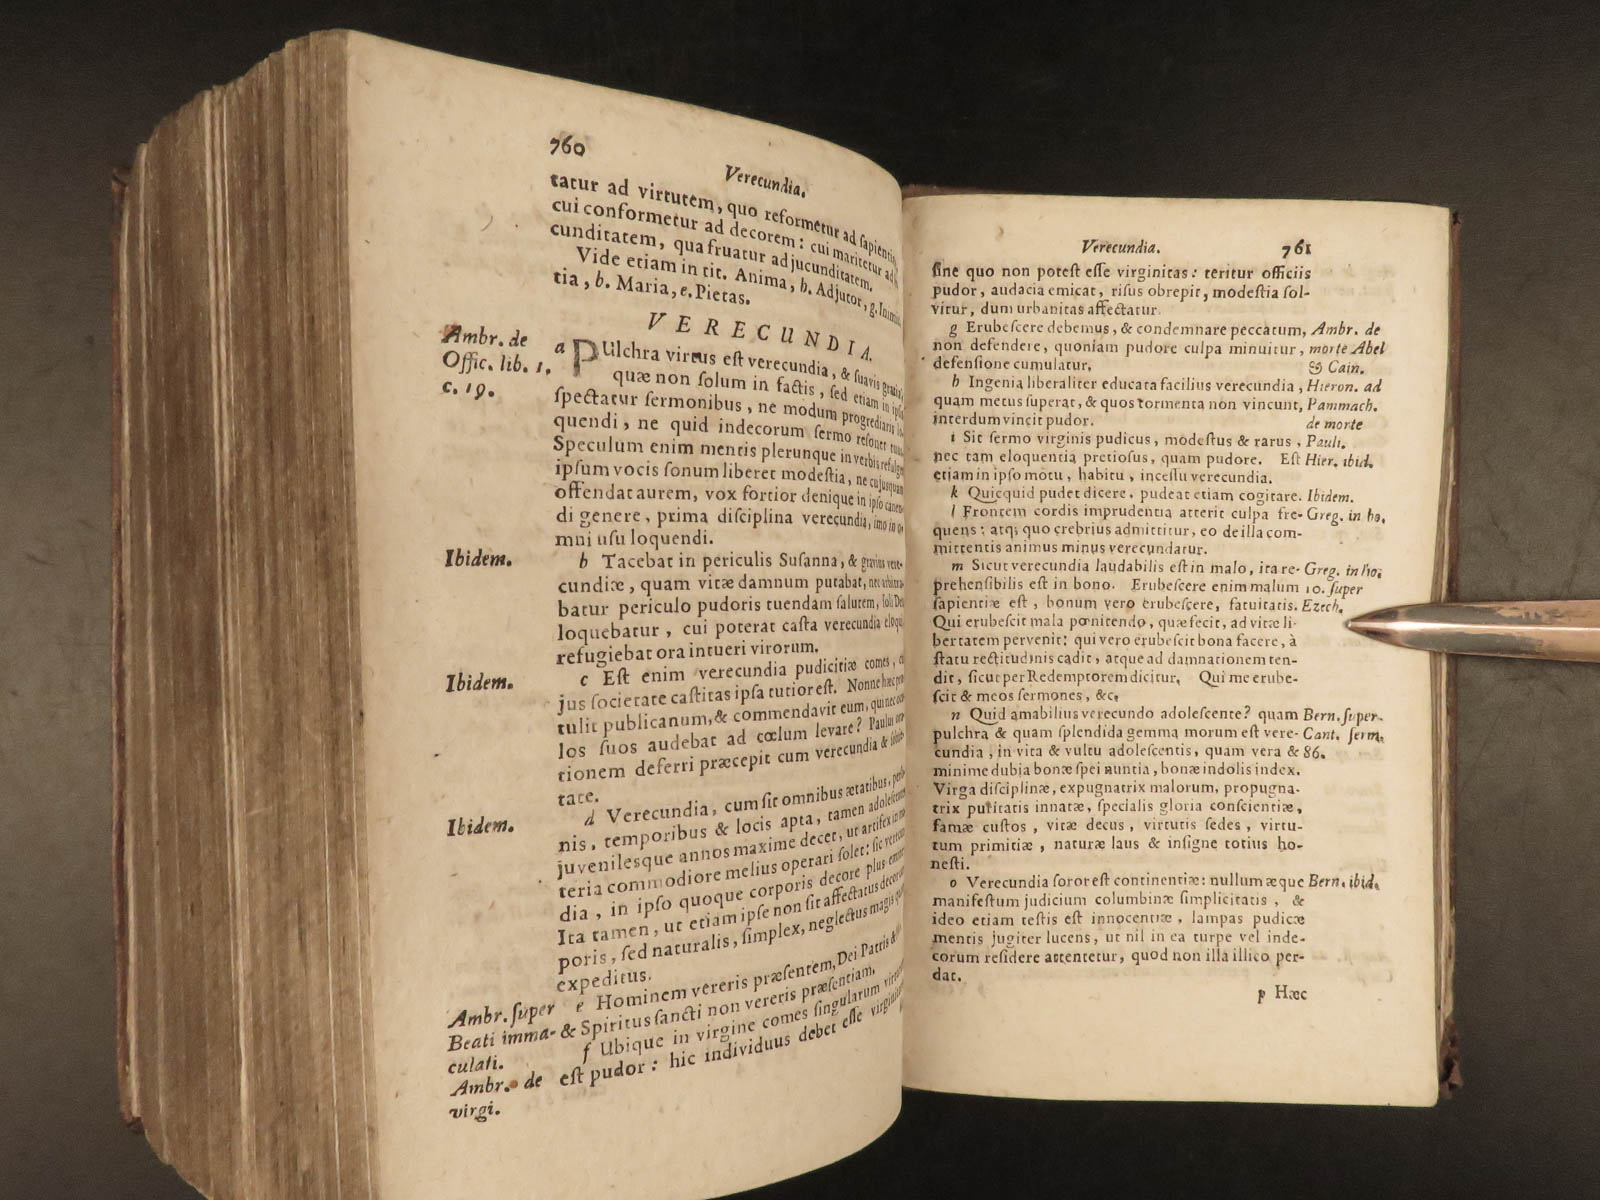 760
Verecundia.
tatur ad virtutem, quo reformetur ad sapientia,
cui conformetur ad decorem: cui maritetur ad
cunditatem, qua fruatur ad jucunditatem.
Vide etiam in tit. Anima, h. Adjutor, g.
tia, b. Maria, e. Pietas.
VERECUNDIA.
Ambr. de
Offic. lib. 1.
c. 19.
a PUlchra virtus est verecundia, & suavis gratia,
quæ non solum in factis, sed etiam in ipsis
spectatur sermonibus, ne modum progrediaris lo-
quendi, ne quid indecorum sermo resonet tuus.
Speculum enim mentis plerunque in verbis refulget
ipsum vocis sonum liberet modestia, ne cujusquam
offendat aurem, vox fortior denique in ipso canen-
di genere, prima disciplina verecundia, imo in o-
mni usu loquendi.
Ibidem.
b Tacebat in periculis Susanna, & gravius vere-
cundiæ, quam vitæ damnum putabat, nec arbitra-
batur periculo pudoris tuendam salutem, soli Deo
loquebatur, cui poterat casta verecundia eloqui
refugiebat ora intueri virorum.
Ibidem.
c Est enim verecundia pudicitiæ comes, cu
jus societate castitas ipsa tutior est. Nonne hæc pro
tulit publicanum, & commendavit eum, qui nec ocu
los suos audebat ad cœlum levare? Paulus ora
tionem deferri præcepit cum verecundia & sobrie-
tate.
Ibidem.
d Verecundia, cum sit omnibus ætatibus, perso
nis, temporibus & locis apta, tamen adolescentes
juvenilesque annos maxime decet, ut artifex in ma
teria commodiore melius operari solet: sic verecun
dia, in ipso quoque corporis decore plus eminet
Ita tamen, ut etiam ipse non sit affectatus decor
poris, sed naturalis, simplex, neglectus magis quam
expeditus.
Ambr. super
Beati imma-
culati.
e Hominem vereris præsentem, Dei Patris &
& Spiritus sancti non vereris præsentiam.
Ambr. de
virgi.
f Ubique in virgine comes singularum virtutum
est pudor: hic individuus debet esse virginitatis
Verecundia. 761
sine quo non potest esse virginitas: teritur officiis
pudor, audacia emicat, risus obrepit, modestia sol-
vitur, dum urbanitas affectatur.
g Erubescere debemus, & condemnare peccatum,
non defendere, quoniam pudore culpa minuitur,
defensione cumulatur.
Ambr. de
morte Abel
& Cain.
h Ingenia liberaliter educata facilius verecundia,
quam metus superat, & quos tormenta non vincunt,
interdum vincit pudor.
Hieron. ad
Pammach.
de morte
Paull.
i Sit sermo virginis pudicus, modestus & rarus,
nec tam eloquentia pretiosus, quam pudore. Est
etiam in ipso motu, habitu, incessu verecundia.
Hier. ibid.
k Quicquid pudet dicere, pudeat etiam cogitare.
Ibidem.
l Frontem cordis imprudentia atterit culpa fre-
quens: atq; quo crebrius admittitur, eo de illa com-
mittentis animus minus verecundatur.
Greg. in ho.
m Sicut verecundia laudabilis est in malo, ita re-
prehensibilis est in bono. Erubescere enim malum
sapientiæ est, bonum vero erubescere, fatuitatis.
Qui erubescit mala pœnitendo, quæ fecit, ad vitæ li-
bertatem pervenit: qui vero erubescit bona facere, à
statu rectitudinis cadit, atque ad damnationem ten-
dit, sicut per Redemptorem dicitur, Qui me erube-
scit & meos sermones, &c.
Greg. in ho.
10. super
Ezech.
n Quid amabilius verecundo adolescente? quam
pulchra & quam splendida gemma morum est vere-
cundia, in vita & vultu adolescentis, quam vera &
minime dubia bonæ spei nuntia, bonæ indolis index.
Virga disciplinæ, expugnatrix malorum, propugna-
trix puritatis innatæ, specialis gloria conscientiæ,
famæ custos, vitæ decus, virtutis sedes, virtu-
tum primitiæ, naturæ laus & insigne totius ho-
nesti.
Bern. super
Cant. serm.
86.
o Verecundia soror est continentiæ: nullum æque
manifestum judicium columbinæ simplicitatis, &
ideo etiam testis est innocentiæ, lampas pudicæ
mentis jugiter lucens, ut nil in ea turpe vel inde-
corum residere attentetur, quod non illa illico per-
dat.
Bern. ibid.
p Hæc